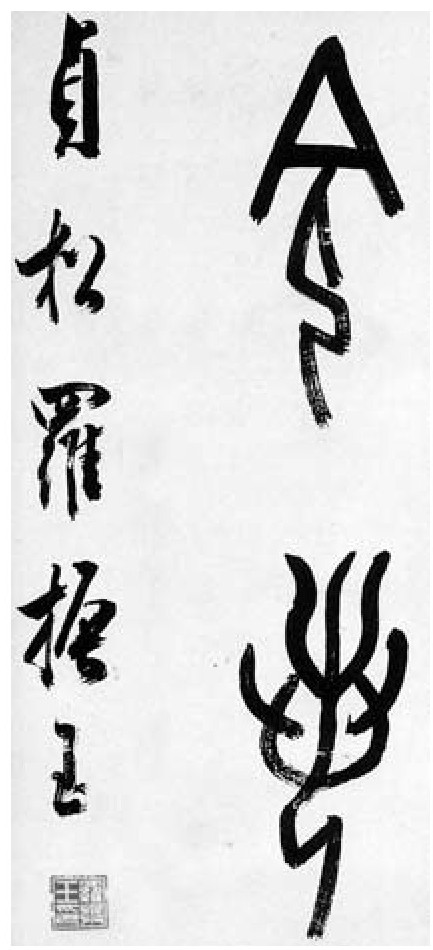 令
貞松羅振玉